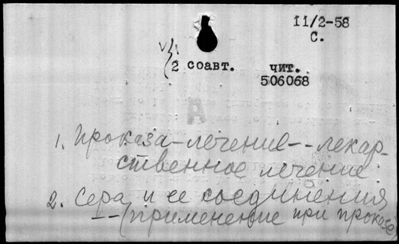 11/2-58
С.
2 соавт. чит.
506068
1. Проказа-лечение--лекар-
ственное лечение
2. Сера и ее соединения
-(применение при проказе